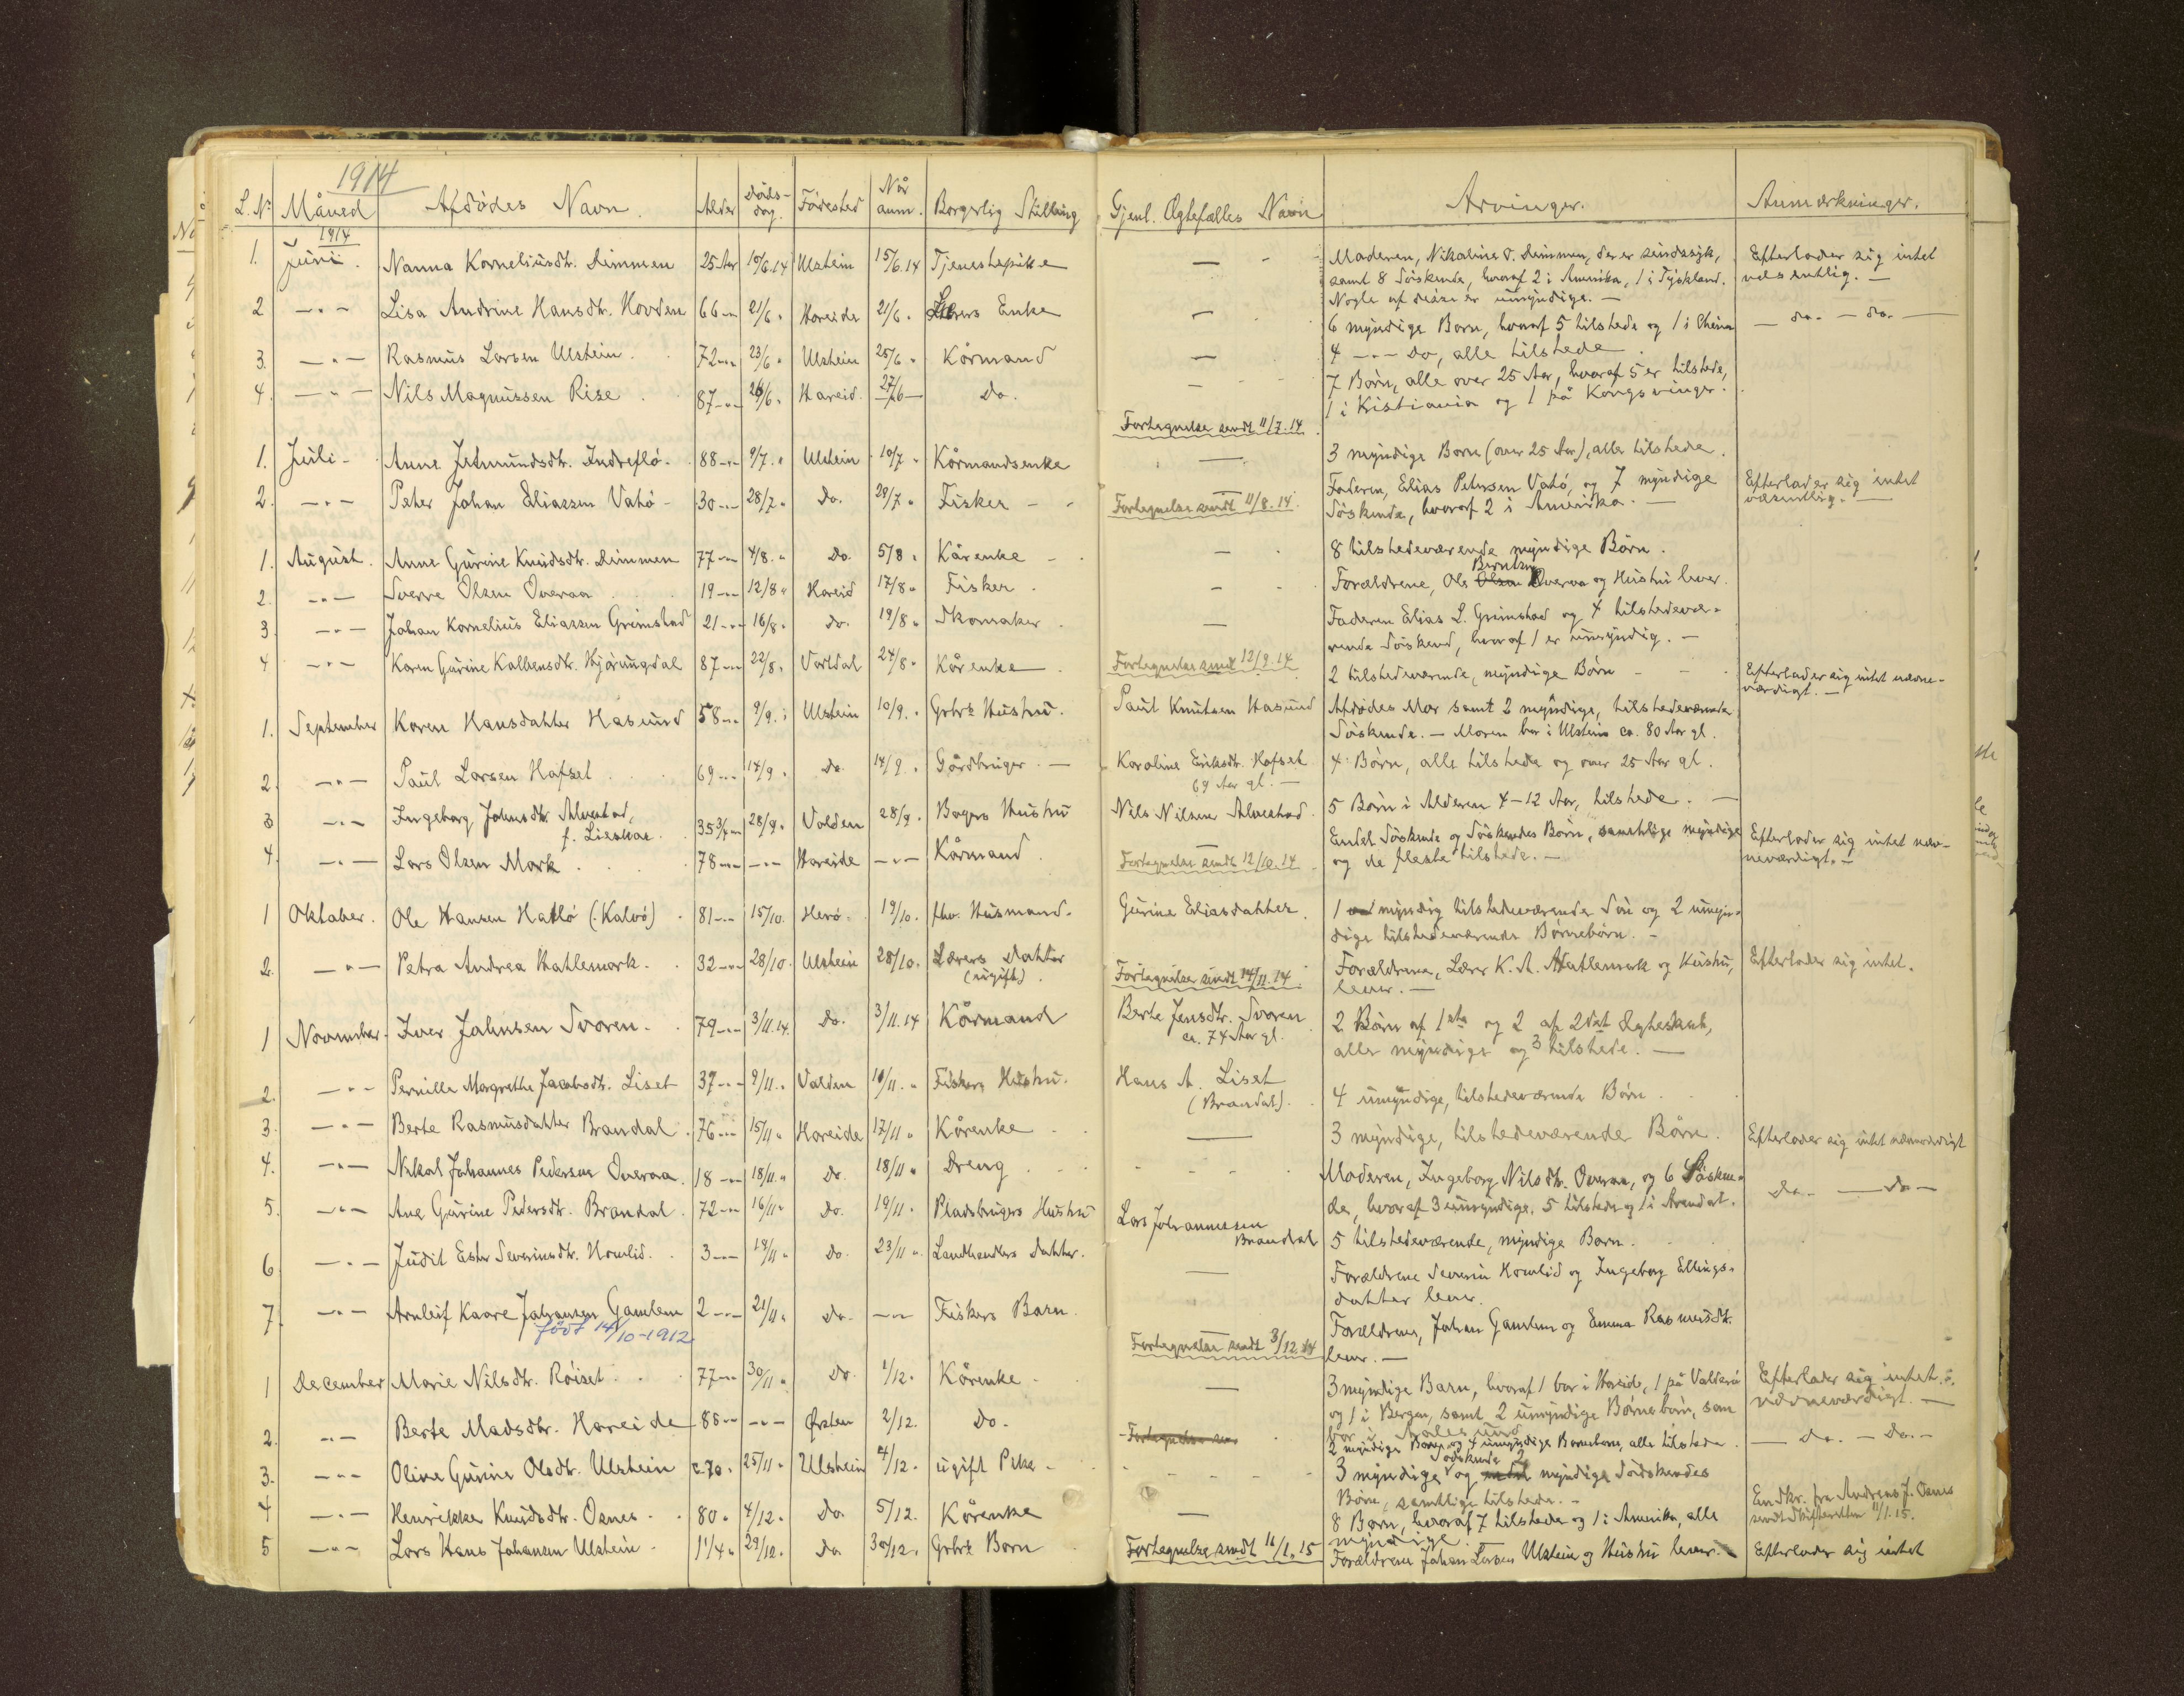 1914
L. No Måned Afdödes Navn. Alder Döds-dag. Födested Når anm. Borgerlig Stilling Gjenl. Ægtefælles Navn Arvinger. Anmærkninger.
1. 1914 Juni. Nanna Korneliusdtr. Dimmen 25 Aar 10/6.14 Ulstein 15/6.14 Tjenestepike — Moderen, Nikoline O. Dimmen, der er sindssyk, Efterlader sig intet
samt 8 Söskende, hvoraf 2 i Amerika, 1 i Tyskland. væsentlig. —
Nogle af disse er umyndige. —
2 —„— Lisa Andrine Hansdtr. Hovden 66 —„— 21/6 „ Hareide 21/6 „ Lærers Enke — 6 myndige Börn, hvoraf 5 tilstede og 1 i China — do. — do. —
3. —„— Rasmus Larsen Ulstein. 72 —„— 23/6 „ Ulstein 25/6 „ Kårmand — 4 —„— Do, alle tilstede.
4. —„— Nils Magnussen Rise 87 —„— 26/6 „ Hareid 27/6 — Do. — 7 Börn, alle over 25 Aar, hvoraf 5 er tilstede,
1 i Kristiania og 1 på Kongsvinger.
Fortegnelse sendt 11/7.14.
1. Juli - Anne Jetmundsdtr. Indreflö. 88 —„— 9/7. „ Ulstein 10/7 „ Kårmandsenke — 3 myndige Börn (over 25 Aar), alle tilstede.
2. —„— Peter Johan Eliassen Vatö - 30 —„— 28/7 „ Do. 29/7 „ Fisker - - — Faderen, Elias Petersen Vatö, og 7 myndige Efterlader sig intet
Fortegnelse sendt 11/8.14. Söskende, hvoraf 2 i Amerika. — væsentlig. —
1. August. Anne Gurine Knudsdtr. Dimmen 77 —„— 4/8. „ Do. 5/8 „ Kårenke - — 8 tilstedeværende myndige Börn.
Berntsen
2. —„— Sverre Olsen Overaa 19 —„— 12/8 „ Hareid 17/8 „ Fisker. — Forældrene, Ole Olsen Overaa og Hustru lever.
3. —„— Johan Kornelius Eliassen Grimstad 21 —„— 16/8 „ Do. 19/8 „ Skomaker. — Faderen Elias L. Grimstad og 4 tilstedevæ-
rende Söskend, hvoraf 1 er umyndig. —
4 —„— Karen Gurine Kolbensdtr. Hjörungdal 87 —„— 22/8 „ Vartdal 24/8 „ Kårenke Fortegnelse sendt 12/9.14 2 tilstedeværende, myndige Börn - - Efterlader sig intet nævne-
værdigt. —
1. September Karen Hansdatter Hasund 58 —„— 9/9. „ Ulstein 10/9. „ Gbrs Hustru. Paul Knutsen Hasund Afdödes Mor samt 2 myndige, tilstedeværende
Söskende. — Moren bor i Ulstein ca. 80 Aar gl.
2. —„— Paul Larsen Hafset 69 —„— 14/9 „ Do. 14/9. „ Gårdbruger. — Karoline Eriksdtr. Hafset 4 Börn, alle tilstede og over 25 Aar gl.
69 Aar gl. —
3 —„— Ingeborg Johnsdtr. Alvestad, 35 3/4 —„— 28/9. „ Volden 28/9. Bagers Hustru Nils Nilsen Alvestad. 5 Börn i Alderen 4-12 Aar, tilstede. —
f. Lieskar.
4. —„— Lars Olsen Mork 78 —„— —„— Hareide —„— Kårmand — Endel Söskende og Söskendes Börn, samtlige myndige Efterlader sig intet næv-
Fortegnelse sendt 12/10.14 og de fleste tilstede. — neværdigt. —
1 Oktober. Ole Hansen Hatlö (Kalvö) 81 —„— 15/10. Herö. 19/10. fhv. Husmand. Gurine Eliasdatter 1 myndig tilstedeværende Sön og 2 umyn-
dige tilstedeværende Börnebörn. —
2. —„— Petra Andrea Hatlemark. 32 —„— 28/10. Ulstein 28/10. Lærers Datter Forældrene, Lærer K. A. Hatlemark og Hustru, Efterlader sig intet.
(ugift). Fortegnelse sendt 14/11.14 lever. —
1 November. Iver Johnsen Svoren. 79 —„— 3/11.14. Do. 3/11.14 Kårmand Berte Jensdtr. Svoren 2 Börn af 1ste og 2 af 2det Ægteskab,
ca. 74 Aar gl. alle myndige og 3 tilstede. —
2. —„— Pernille Margrethe Jacobsdtr. Liset 37 —„— 9/11. „ Volden 10/11. „ Fiskers Hustru. Hans A. Liset 4 umyndige, tilstedeværende Börn.
(Brandal).
3. —„— Berte Rasmusdatter Brandal. 76 —„— 15/11 „ Hareide 17/11 „ Kårenke — 3 myndige, tilstedeværende Börn. Efterlader sig intet nævneværdigt
4. —„— Nikal Johannes Pedersen Overaa. 18 —„— 18/11. „ Do. 18/11 „ Dreng - Moderen, Ingeborg Nilsdtr. Overaa, og 6 Sösken-
de, hvoraf 3 umyndige. 5 tilstede og 1 i Arendal. Do. — do —
5. —„— Ane Gurine Pedersdtr. Brandal. 72 —„— 16/11 „ Do. 19/11 „ Pladsbrugers Hustru Lars Johannessen
Brandal 5 tilstedeværende, myndige Börn.
6. —„— Judit Ester Severinsdtr. Homlid. 3 —„— 19/11 „ Do. 23/11 „ Landhandlers datter. — Forældrene Severin Homlid og Ingeborg Ellings-
datter lever.
7. —„— Arnleif Kaare Johansen Gamlem 2 —„— 21/11 „ Do. —„— Fiskers Barn. — Forældrene, Johan Gamlem og Emma Rasmusdtr.
född 14/10-1912 Fortegnelse sendt 3/12.14 lever. —
1 December Marie Nilsdtr. Röiset. 77 —„— 30/11 „ Do. 1/12. „ Kårenke. — 3 myndige Börn, hvoraf 1 bor i Hareid, 1 på Valderö Efterlader sig intet
og 1 i Bergen, samt 2 umyndige Börnebörn, som nævneværdigt. —
bor i Aalesund
2. —„— Berte Madsdtr. Hareide 86 —„— —„— Örsten 2/12. Do. Fortegnelse sen 2 myndige Börn og 4 umyndige Barnebarn, alle tilstede. — Do. — Do. —
Södskende 2
3. —„— Oline Gurine Olsdtr. Ulstein c. 70. 25/11 „ Ulstein 4/12. ugift Pike - 3 myndige og myndige Södskendes
Börn, samtlige tilstede. —
4 —„— Henrikke Knudsdtr. Osnes. 80. 4/12. „ Do. 5/12. Kårenke — 8 Börn, hvoraf 7 tilstede og 1 i Amerika, alle Endkr. fra Andreas J. Osnes
myndige. sendt Skifteretten 11/1.15.
5 —„— Lars Hans Johansen Ulstein. 1 1/4 „ 29/12. Do 30/12. Gbrs Barn Fortegnelse sendt 11/1.15 Forældrene Johan Larsen Ulstein og Hustru lever. Efterlader sig intet